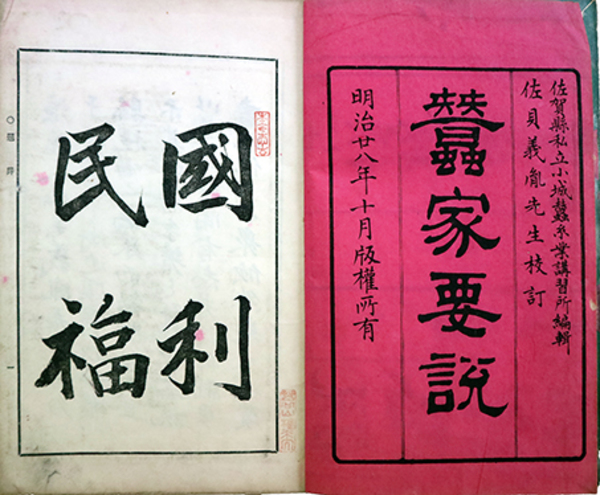 佐賀縣私立小城蠶糸業講習所編輯
佐貝義胤先生校訂
蠶家要說
明治廿八年十月版權所有
國利
民福